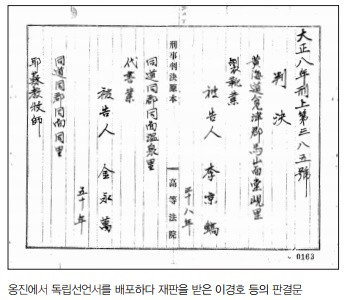 大正八年刑上第三八五號
判決
黃海道甕津郡馬山面堂峴里
製靴業
被告人 李京鎬
三十八年
刑事判決原本 高等法院
同道同郡同面溫泉里
代書業
被告人 金永萬
五十年
同道同郡同面同里
耶蘇敎牧師
0163
옹진에서 독립선언서를 배포하다 재판을 받은 이경호 등의 판결문